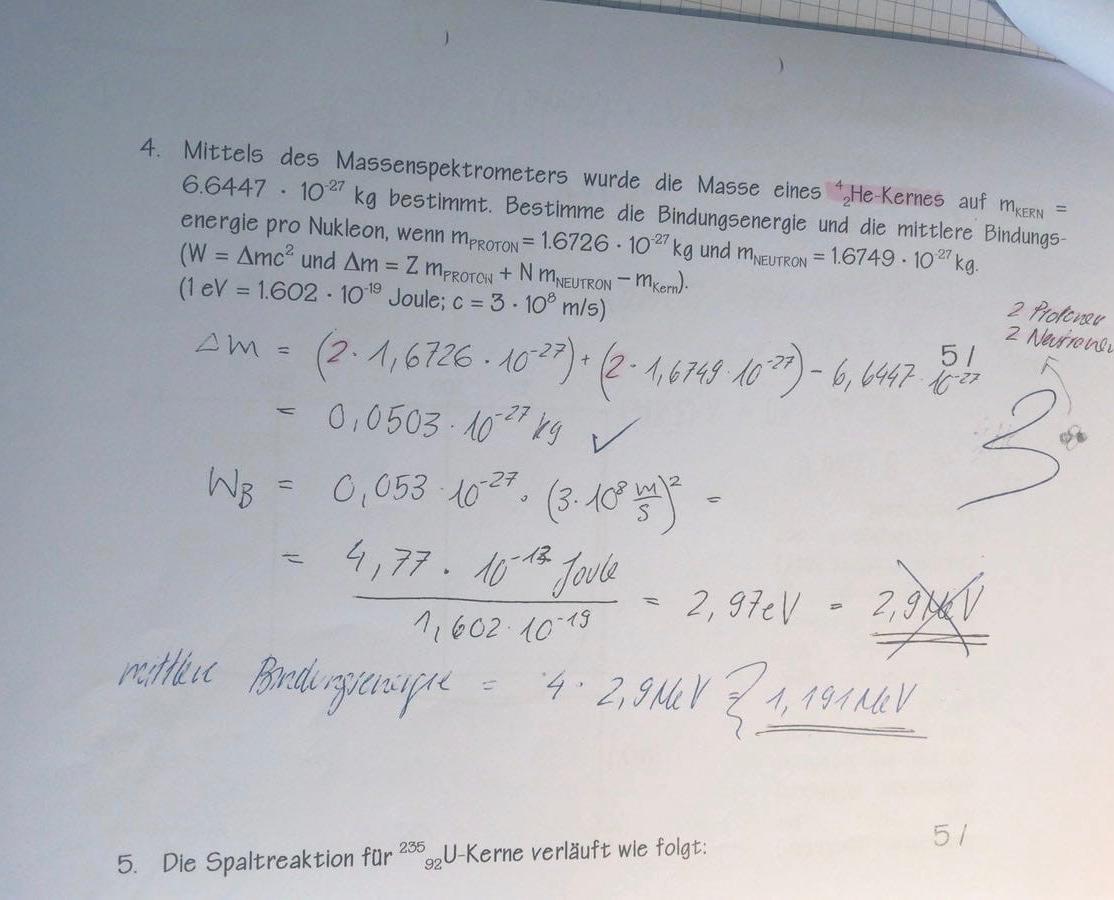 4. Mittels des Massenspektrometers wurde die Masse eines ⁴₂He-Kernes auf m_KERN =
6.6447 · 10⁻²⁷ kg bestimmt. Bestimme die Bindungsenergie und die mittlere Bindungs-
energie pro Nukleon, wenn m_PROTON = 1.6726 · 10⁻²⁷ kg und m_NEUTRON = 1.6749 · 10⁻²⁷ kg.
(W = Δmc² und Δm = Z m_PROTON + N m_NEUTRON – m_Kern).
(1 eV = 1.602 · 10⁻¹⁹ Joule; c = 3 · 10⁸ m/s)
2 Protonen
2 Neutronen
5/
Δm = (2 · 1,6726 · 10⁻²⁷) + (2 · 1,6749 · 10⁻²⁷) – 6,6447 · 10⁻²⁷
3
= 0,0503 · 10⁻²⁷ kg ✓
W_B = 0,053 · 10⁻²⁷ · (3 · 10⁸ m/s)² =
= 4,77 · 10⁻¹³ Joule
1,602 · 10⁻¹⁹ = 2,97eV = 2,9MeV
mittlere Bindungsenergie = 4 · 2,9MeV = 1,191MeV
5/
5. Die Spaltreaktion für ²³⁵₉₂U-Kerne verläuft wie folgt: